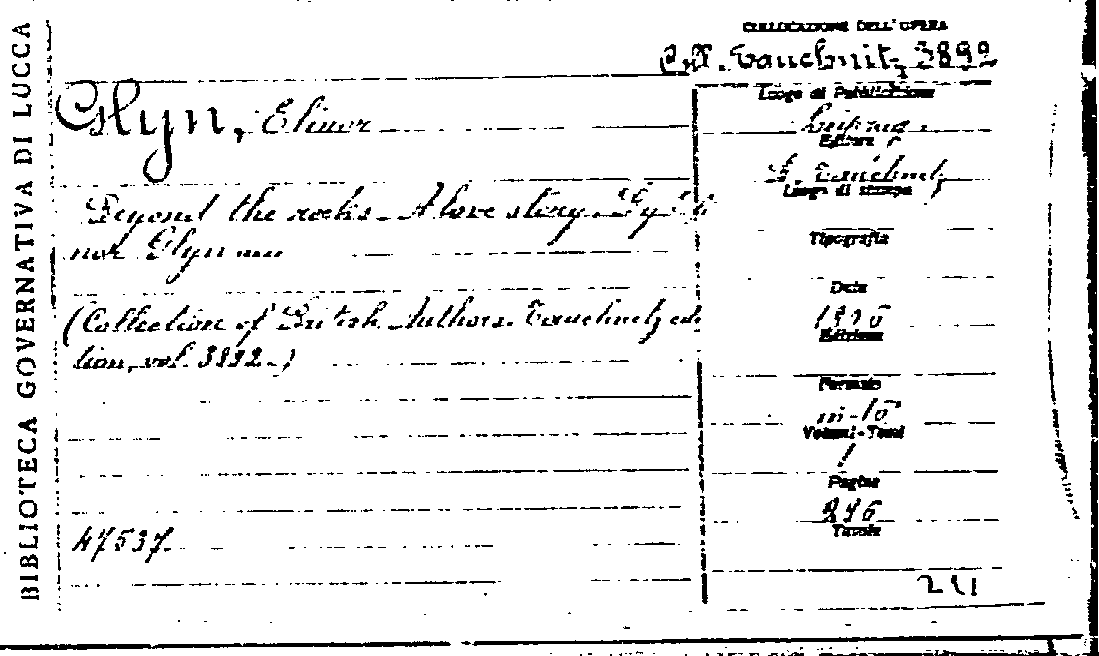 BIBLIOTECA GOVERNATIVA DI LUCCA
COLLOCAZIONE DELL'OPERA
Coll. Tauchnitz 3892
Glyn, Elinor
Beyond the rocks. A love story. By Eli
nor Glyn
(Collection of British Authors. Tauchnitz edi
tion, vol. 3892.)
47537
Luogo di Pubblicazione
Leipzig
Editore
B. Tauchnitz
Luogo di stampa
Tipografia
Data
1906
Edizione
Formato
in-16
Volumi-Tomi
1
Pagine
296
Tavole